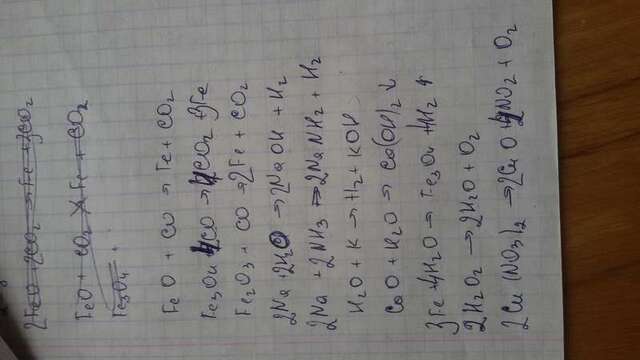 2FeO + 2CO₂ → Fe + 3CO₂
FeO + CO₂ → Fe + CO₂
Fe₃O₄ +
FeO + CO → Fe + CO₂
Fe₃O₄ + 4CO → 4CO₂ + 3Fe
Fe₂O₃ + CO → 2Fe + CO₂
2Na + 2H₂O → 2NaOH + H₂
2Na + 2NH₃ → 2NaNH₂ + H₂
H₂O + K → H₂ + KOH
CaO + H₂O → Ca(OH)₂ ↓
3Fe + 4H₂O → Fe₃O₄ + 4H₂ ↑
2H₂O₂ → 2H₂O + O₂
2Cu(NO₃)₂ → 2CuO + 4NO₂ + O₂